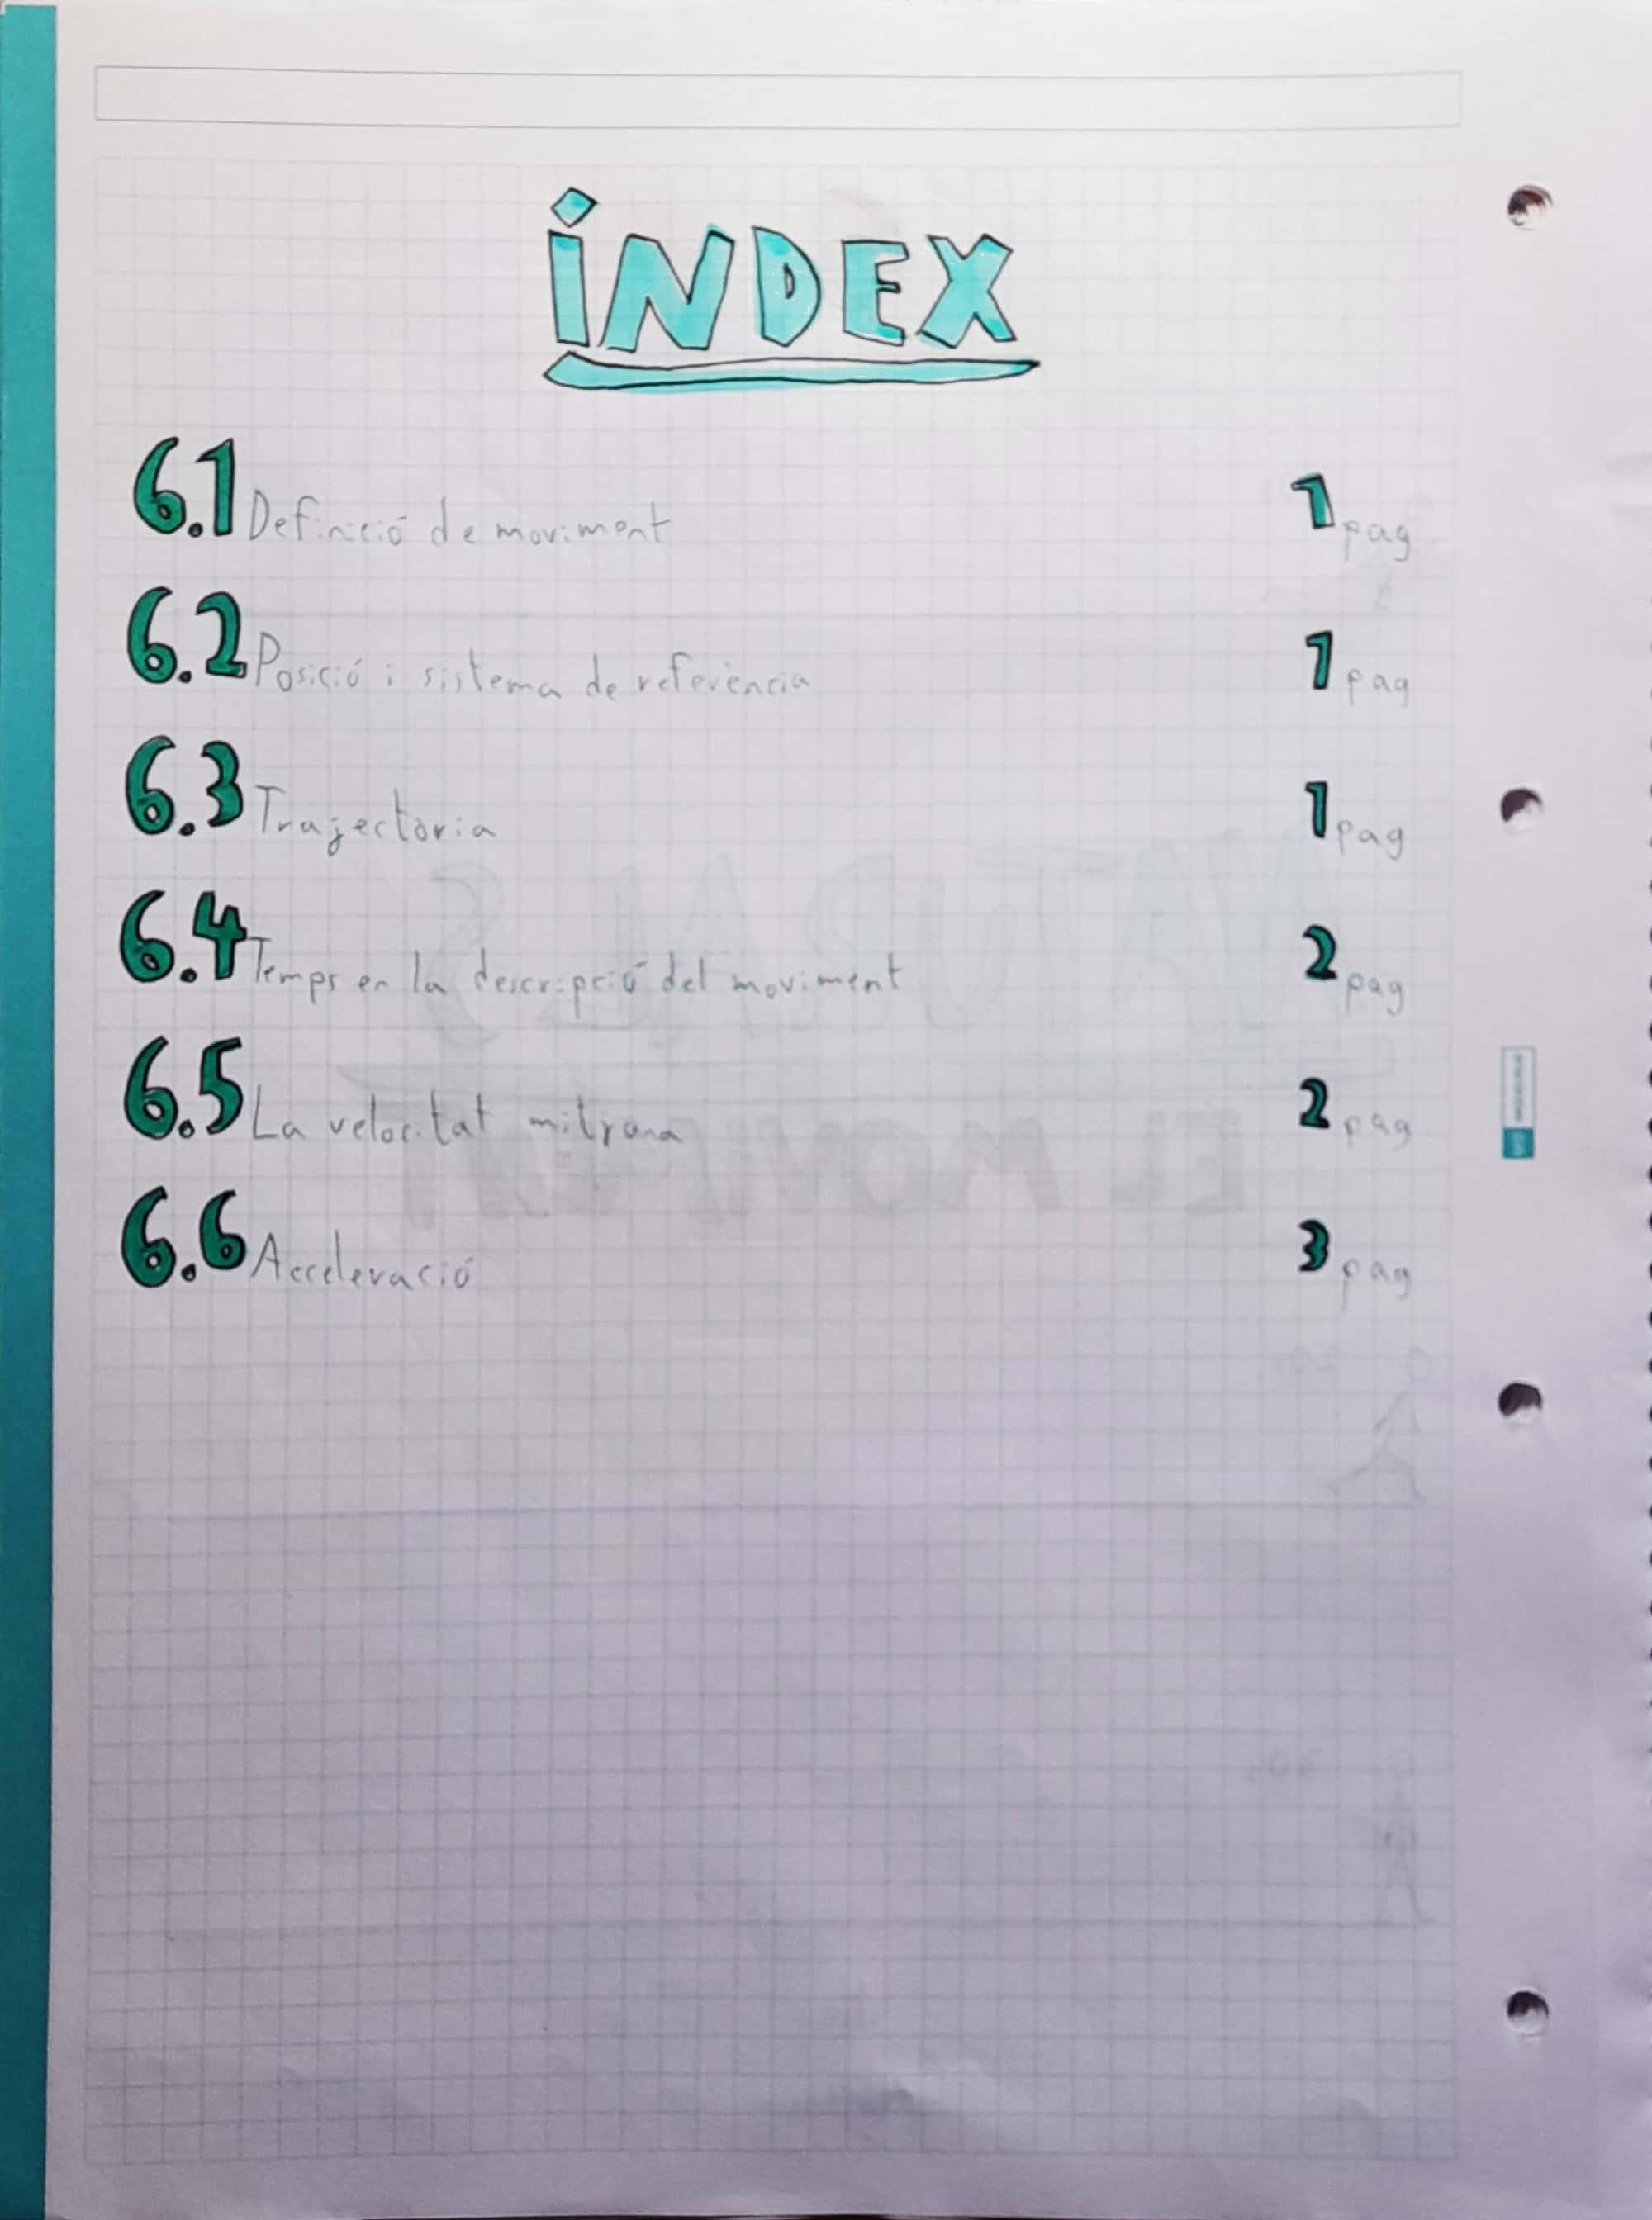 iNDEX
6.1 Definició de moviment 1 pag
6.2 Posició i sistema de referència 1 pag
6.3 Trajectòria 1 pag
6.4 Temps en la descripció del moviment 2 pag
6.5 La velocitat mitjana 2 pag
6.6 Acceleració 3 pag